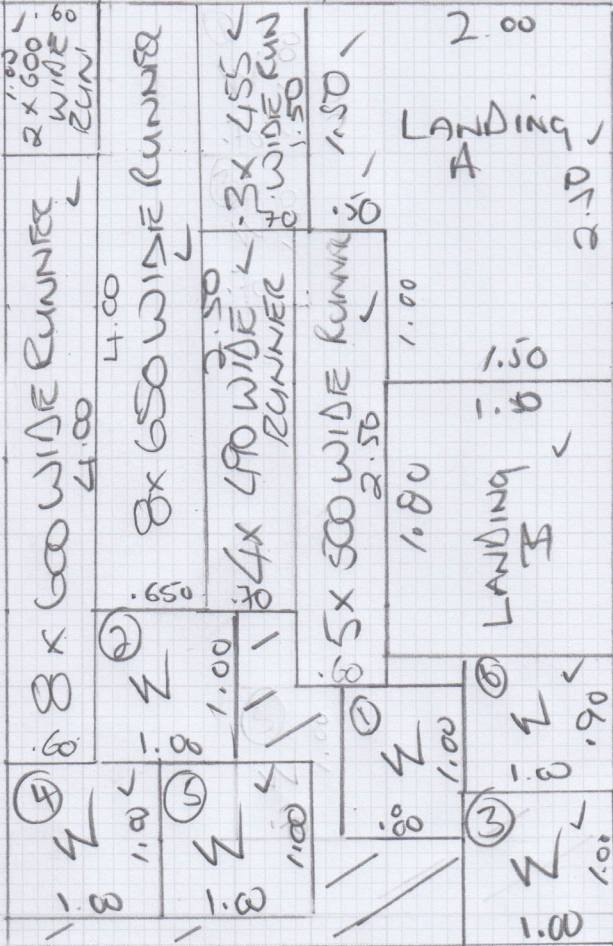 1.00
2 x 600 .60
WIDE
RUN
8 x 600 WIDE RUNNER
4.00
.60
8 x 650 WIDE RUNNER
4.00
.650
3 x 455
WIDE RUN
1.50
.70
4 x 490 WIDE
2.50
RUNNER
.70
1.50
.50
5 x 500 WIDE RUNNER
2.50
.60
2.00
LANDING
A
2.10
1.00
1.50
1.80
LANDING
2
W
1.00
1.00
1
W
1.00
6
W
.90
1.00
4
W
1.00
1.00
5
W
1.00
1.00
3
W
1.00
1.00